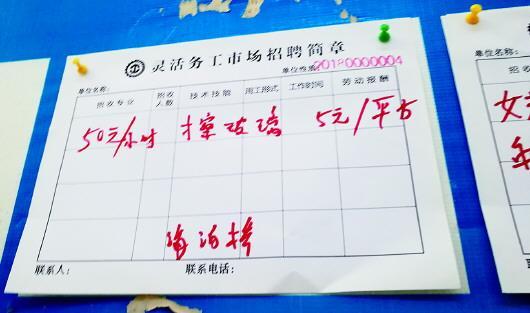 灵活务工市场招聘简章
单位名称: 单位性质: 20180000004
招收专业 招收人数 技术技能 用工形式 工作时间 劳动报酬
50元/小时 擦玻璃 5元/平方
联系人: 联系电话:
单
招收
女